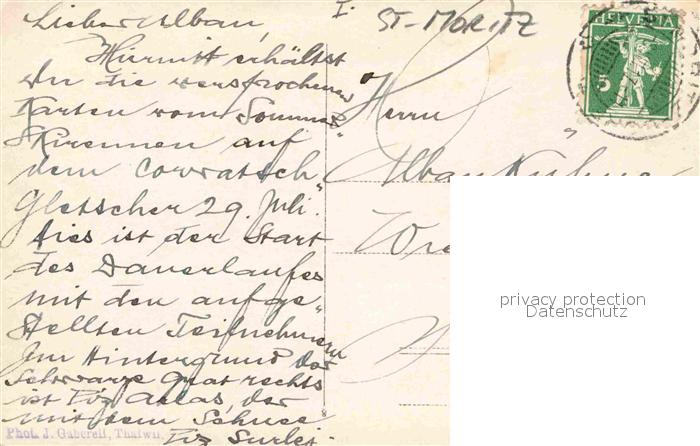 I.
ST-MORITZ
HELVETIA
5
Lieber Alban,
Hiermit erhältst
du die versprochenen
Karten vom Sommer
Skirennen auf
dem Corvatsch
Gletscher 29. Juli.
Dies ist der Start
des Dauerlaufes
mit den aufge
stellten Teilnehmern
Im Hintergrund der
Schwarze Grat rechts
ist Piz Atlas der
mit dem Schnee
Piz Surlej.
Phot. J. Gaberell, Thalwil
Herrn
Alban
privacy protection
Datenschutz